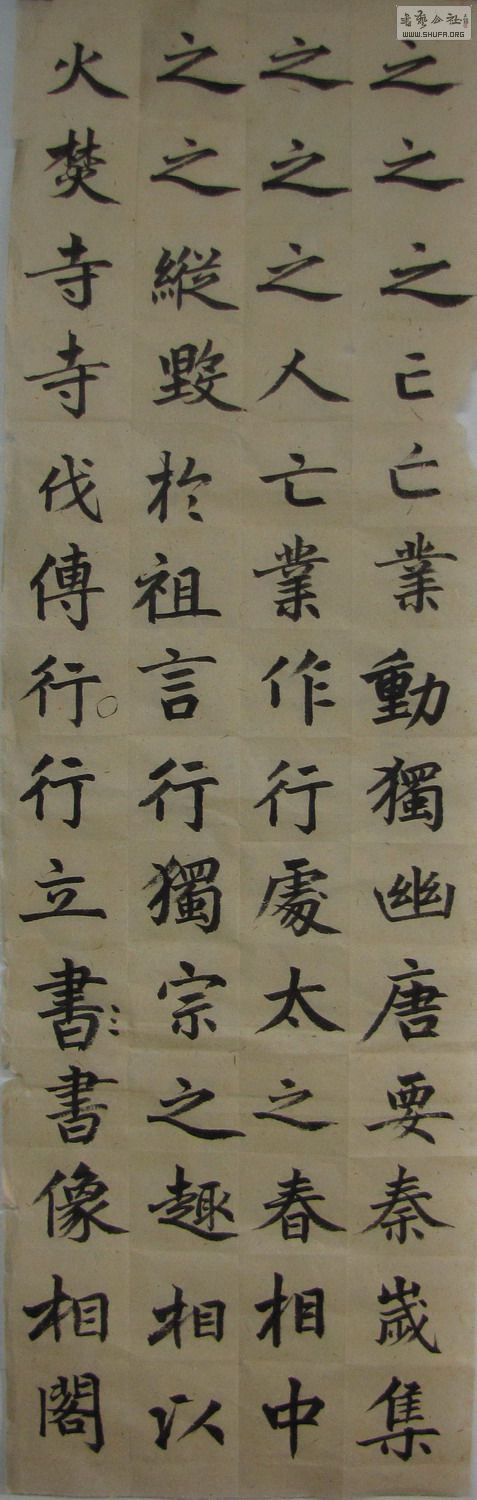 之之之亡亡業動獨幽唐要秦歲集
之之之人亡業作行處太之春相中
之之縱毀於祖言行獨宗之趣相以
火焚寺寺伐傳行行立書書像相閣
书艺公社
WWW.SHUFA.ORG